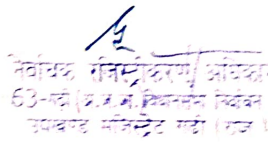 निर्वाचक रजिस्ट्रीकरण अधिकारी
63-गढ़ी (अ.ज.जा.) विधानसभा निर्वाचन
उपखण्ड मजिस्ट्रेट गढ़ी (राज